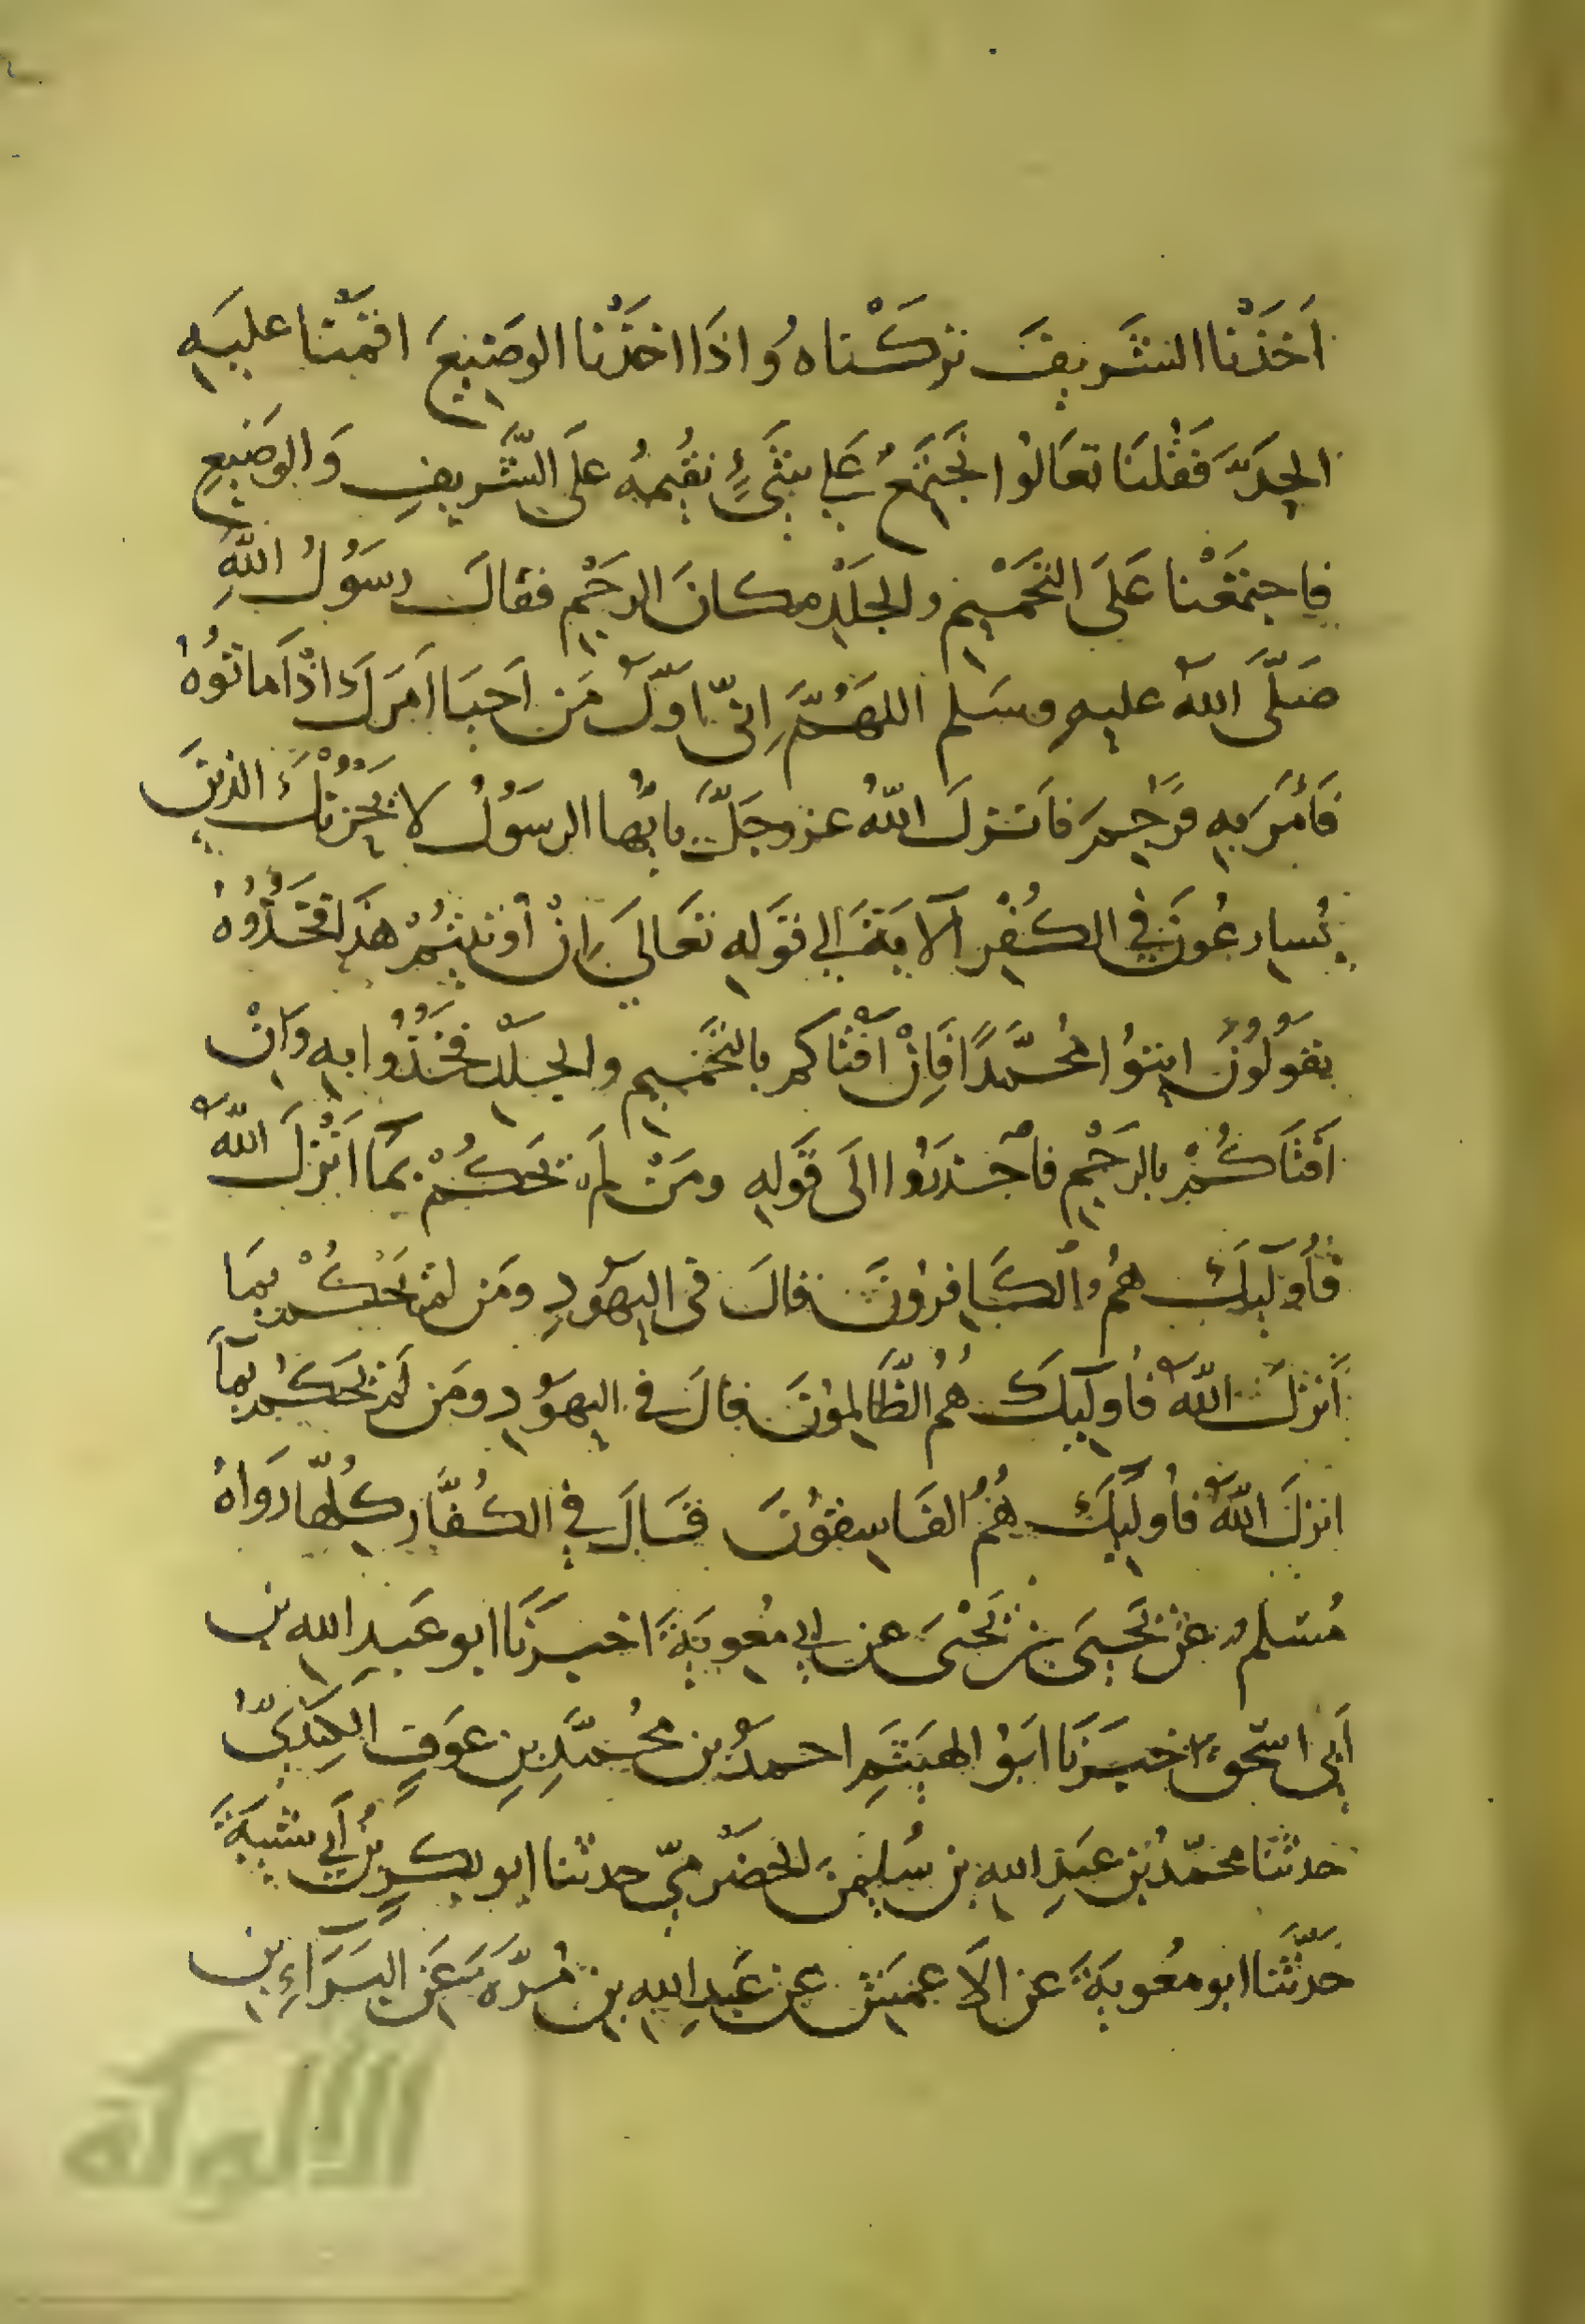 اَخَذْنا الشَّريفَ تركْناه وَاذَا اخذْنا الوضِيعَ اقمْنا عليهِ
الحدَّ فَقُلنَا تعَالوُا نَجْتمِعُ علي شَيْءٍ نقيمُه علَى الشَّريفِ وَالوضيعِ
فاجتمعْنا عَلىَ التحْميمِ والجَلْدِ مكانَ الرجْمِ فقالَ رسوُلُ اللهِ
صَلَّى اللهُ عليهِ وسَلم اللهُمَّ اِنّي اوّلُ مَن اَحيَا اَمرَكَ اذْ اَماتوُهُ
فَأمَرَ بهِ فرُجِمَ فاَنزلَ اللهُ عز وجَلَّ يا يُّها الرسوُلُ لا يَحْزنْكَ الذينَ
يُسارعُونَ في الكُفْرِ الآيةَ الي قوَلهِ تعَالَي اِنْ أوتيتُمْ هذَا فَخُذُوُه
يقوُلوُنَ ايتوُا مُحمَّدًا فاِنْ اَفْتاكم بالتحْميمِ والجلدِ فخُذُوا بهِ وَانْ
اَفتَاكُمْ بالرَجْمِ فاحْذرَوُا الَى قوَلهِ ومَنْ لم يَحكُمْ بمَا اَنْزلَ اللهُ
فأوليِكَ هُمُ الكَافروُنَ قالَ في اليهَوُدِ ومَن لم يَحْكُمْ بِمَا
اَنزلَ اللهُ فأوليكَ هُمُ الظّالِموُنَ قالَ في اليهوَُدِ ومَن لم يَحكُمْ بمآ
انزلَ اللهُ فأوليِكَ هُمُ الفَاسِقوُنَ قَالَ في الكُفَّارِ كلِّها رَواهُ
مُسْلم عَنْ يَحيىَ بنِ يَحْيىَ عن ابي مُعوِيَةَ اخبرَنا ابو عَبدِ اللهِ بن
اَبي اسْحقَ اخبرَنا ابَوُ الهيَثمِ احمدُ بن محُمَّدِ بنِ عوَفٍ الكِنْديُّ
حدثنا محمّدُ بنُ عَبدِ اللهِ بن سُليمنَ الحضْرميّ حدثنا ابو بكرِ بنُ أبي شيبةَ
حَدّثَنا ابو معُويَةَ عن الاَعمَشِ عن عَبدِ اللهِ بن مُرّةَ عَن البَرَآءِ بن
الألوكة